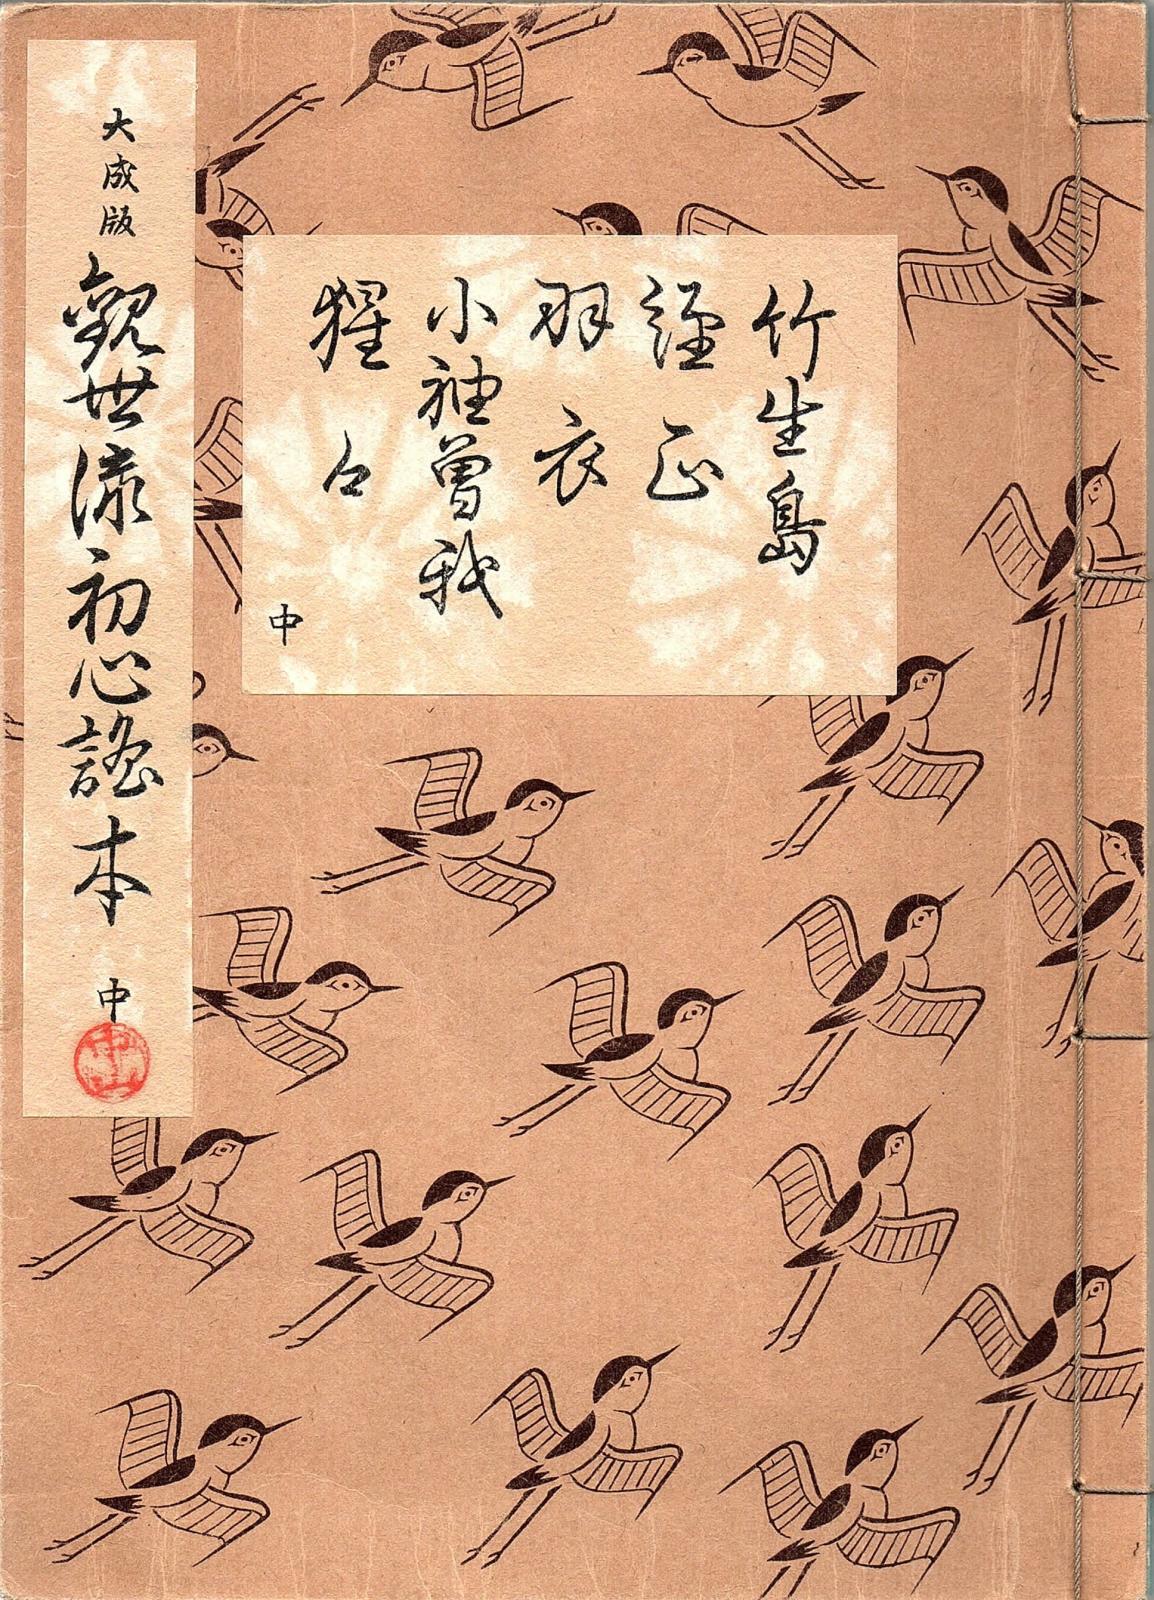 竹生島
經正
羽衣
小袖曽我
猩々
中
大成版
觀世流初心謠本
中
中山